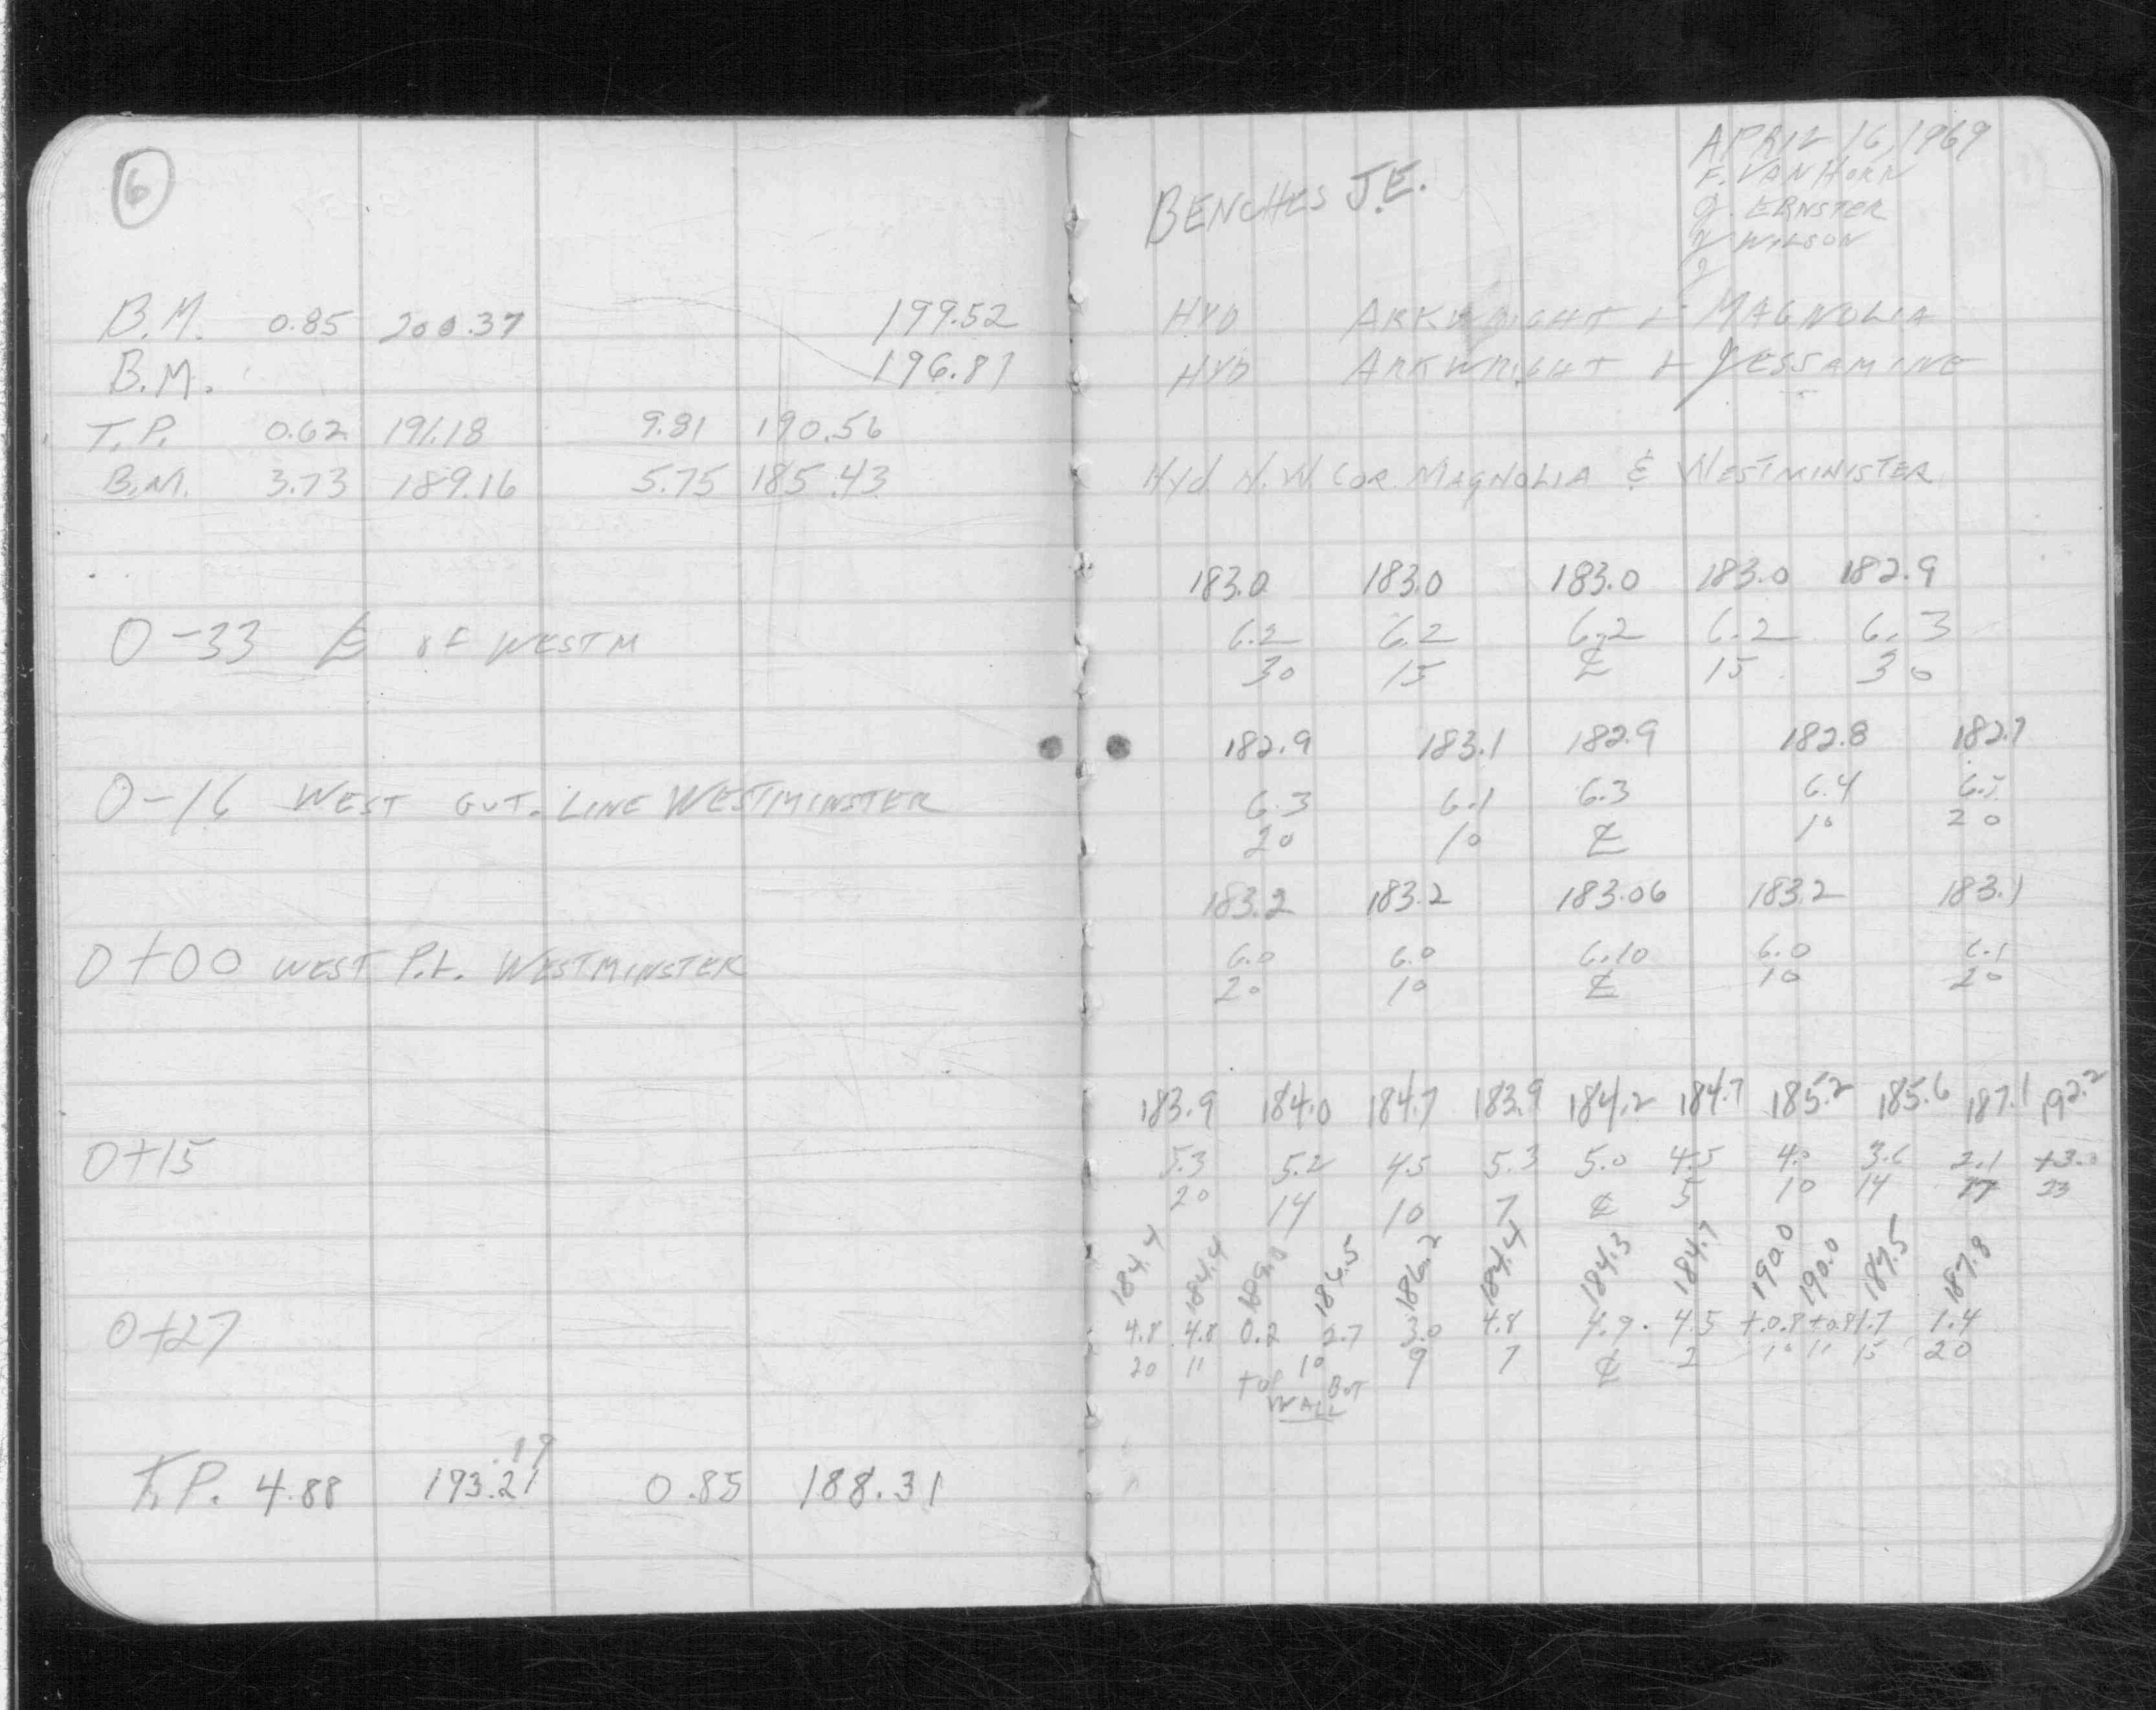 6
B.M. 0.85 200.37 199.52
B.M. 196.87
T.P. 0.62 191.18 9.81 190.56
B.M. 3.73 189.16 5.75 185.43
0-33 ℄ of WESTM
0-16 WEST GUT. LINE WESTMINSTER
0+00 WEST P.L. WESTMINSTER
0+15
0+27
.19
T.P. 4.88 193.21 0.85 188.31
APRIL 16, 1969
BENCHES J.E.
F. VAN HORN
ERNSTER
WILSON
HYD ARKWRIGHT + MAGNOLIA
HYD ARKWRIGHT + JESSAMINE
Hyd. N.W. COR. MAGNOLIA & WESTMINISTER
183.0 183.0 183.0 183.0 182.9
6.2 6.2 6.2 6.2 6.3
30 15 ℄ 15 30
182.9 183.1 182.9 182.8 182.7
6.3 6.1 6.3 6.4 6.5
20 10 ℄ 10 20
183.2 183.2 183.06 183.2 183.1
6.0 6.0 6.10 6.0 6.1
20 10 ℄ 10 20
183.9 184.0 184.7 183.9 184.2 184.7 185.2 185.6 187.1 192.2
5.3 5.2 4.5 5.3 5.0 4.5 4.0 3.6 2.1 +3.0
20 14 10 7 ℄ 5 10 14 17 23
184.4 184.4 189.0 186.5 186.2 184.4 184.3 184.7 190.0 190.0 187.5 187.8
4.8 4.8 0.2 2.7 3.0 4.8 4.9 4.5 +0.8 +0.8 1.7 1.4
20 11 10 9 7 ℄ 2 10 11 15 20
TOP BOT
WALL